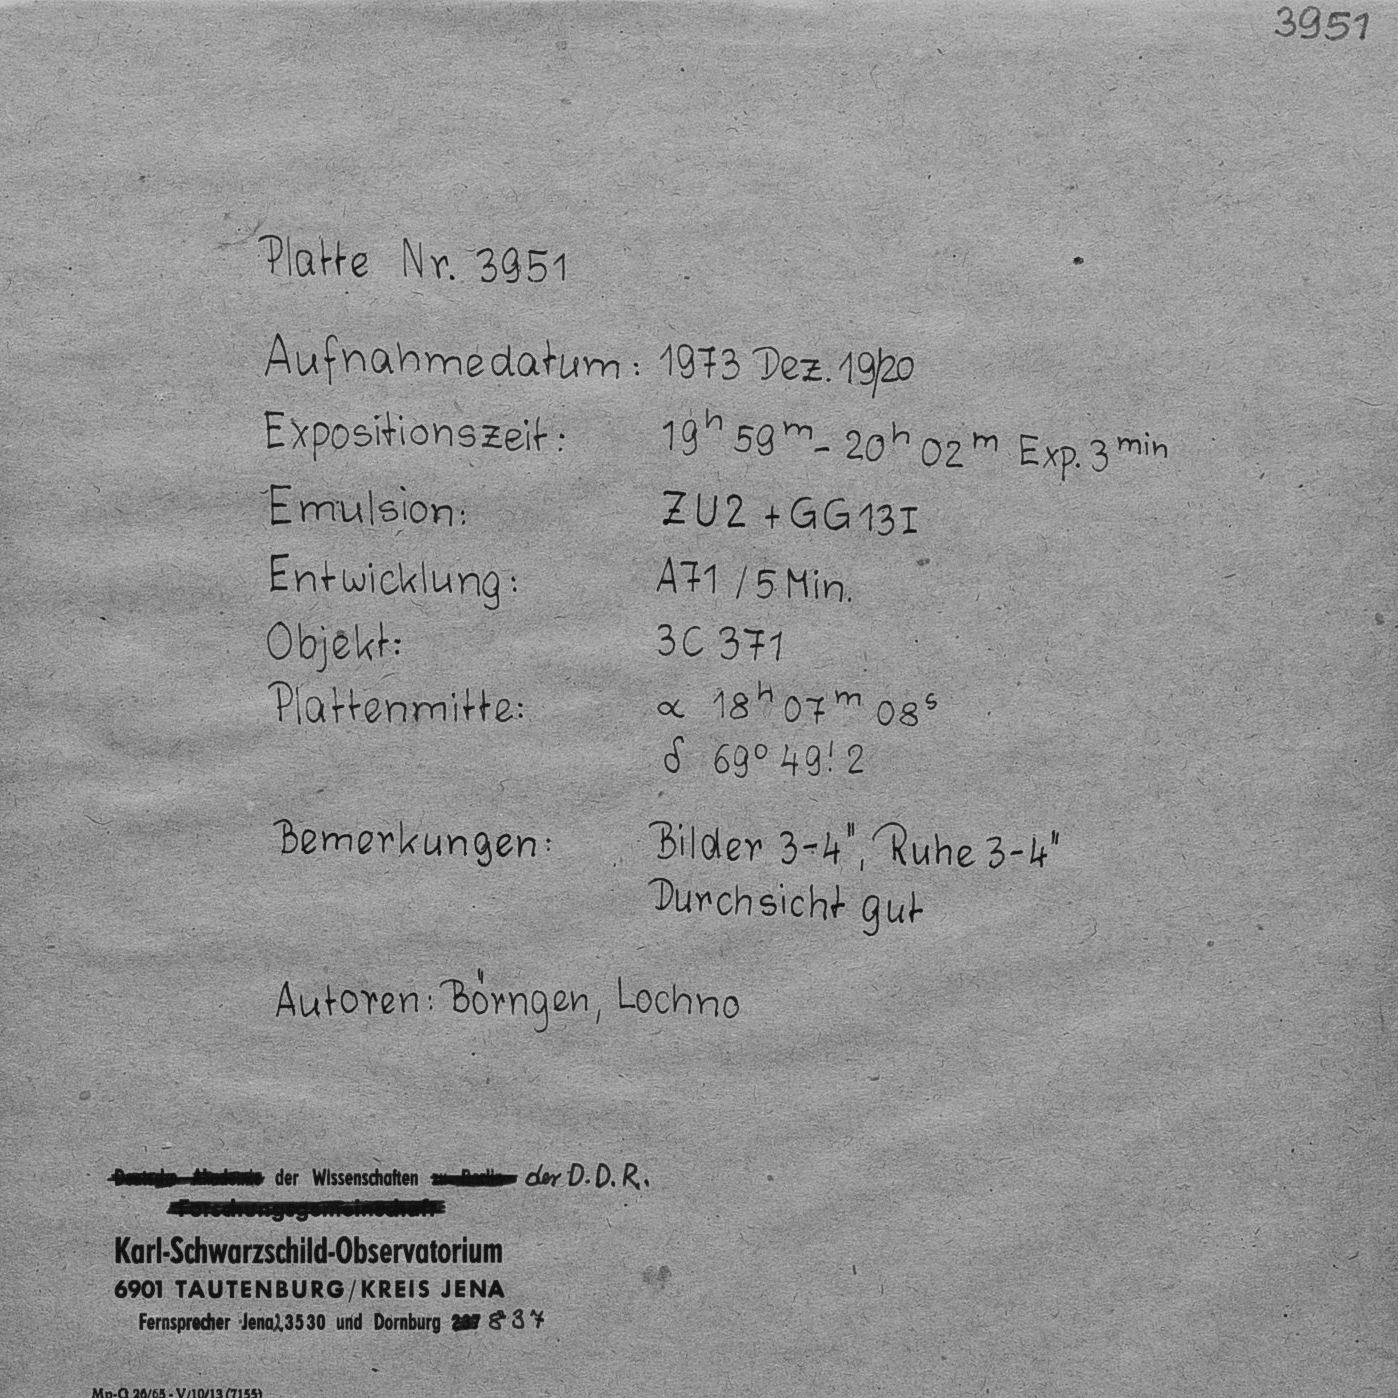 3951
Platte Nr. 3951
Aufnahmedatum: 1973 Dez. 19/20
Expositionszeit: 19ʰ 59ᵐ - 20ʰ 02ᵐ Exp. 3ᵐⁱⁿ
Emulsion: ZU2 + GG13I
Entwicklung: A71 / 5 Min.
Objekt: 3C 371
Plattenmitte: α 18ʰ 07ᵐ 08ˢ
δ 69° 49!2
Bemerkungen: Bilder 3-4", Ruhe 3-4"
Durchsicht gut
Autoren: Börngen, Lochno
der Wissenschaften der D.D.R.
Forschungsgemeinschaft
Karl-Schwarzschild-Observatorium
6901 TAUTENBURG/KREIS JENA
Fernsprecher Jena 3530 und Dornburg 837
Mp-G 26/65 - V/10/13 (7155)